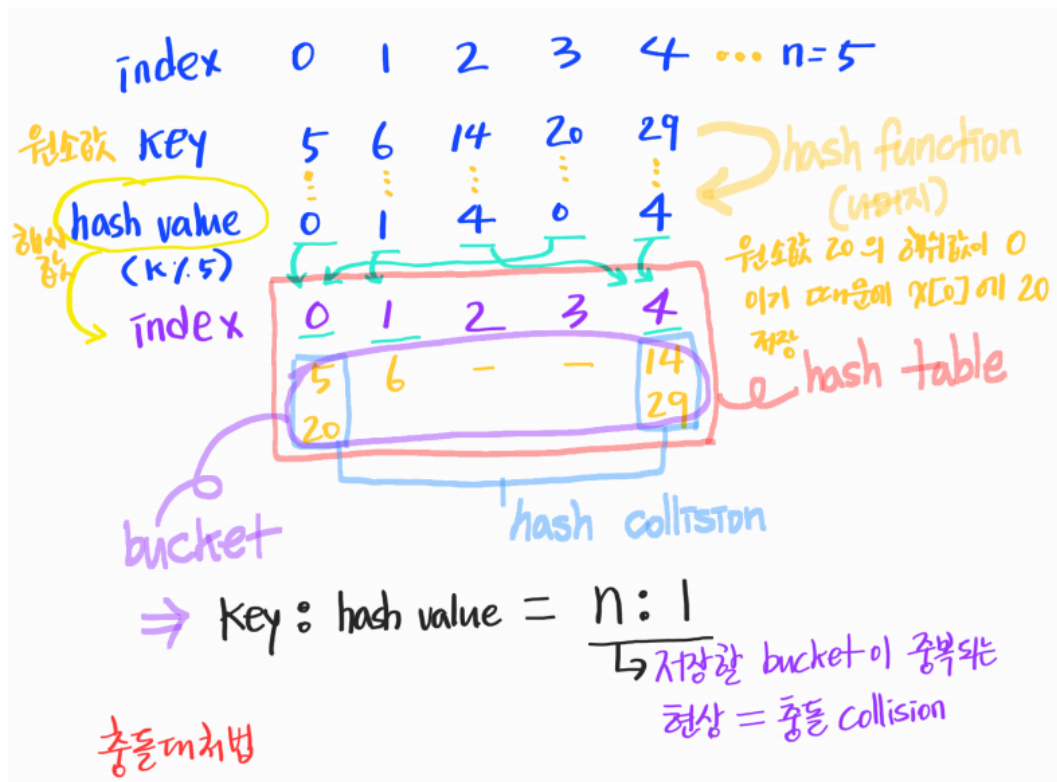 index 0 1 2 3 4 ... n=5
원소값 KEY 5 6 14 20 29
hash function
(나머지)
hash value 0 1 4 0 4
해시
값
(K%5)
원소값 20의 해쉬값이 0
이기 때문에 x[0]에 20
저장
index 0 1 2 3 4
5 6 - - 14
20 29
hash table
hash collision
bucket
⇒ Key : hash value = n : 1
↳ 저장할 bucket이 중복되는
현상 = 충돌 collision
충돌대처법